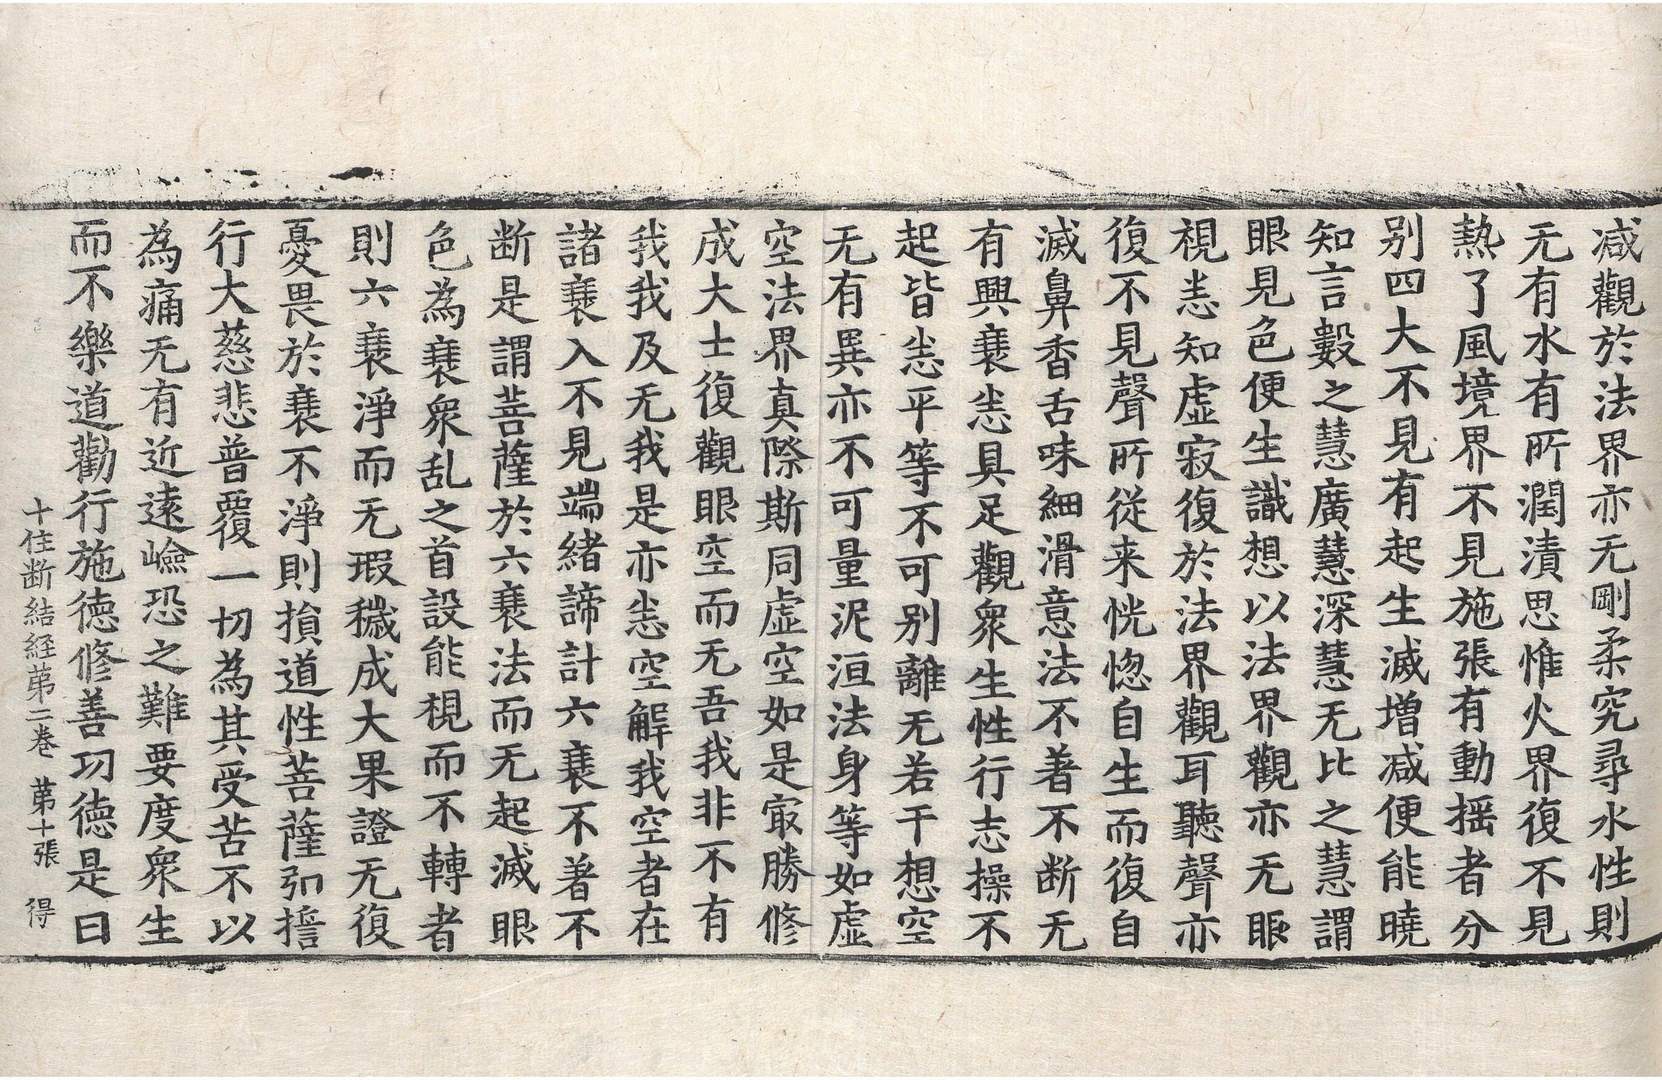 减觀於法界亦无剛柔究尋水性則
无有水有所潤漬思惟火界復不見
熱了風境界不見施張有動摇者分
别四大不見有起生滅增减便能曉
知言數之慧廣慧深慧无比之慧謂
眼見色便生識想以法界觀亦无眼
視悉知虛寂復於法界觀耳聽聲亦
復不見聲所從来恍惚自生而復自
滅鼻香舌味細滑意法不著不断无
有興衰悉具足觀衆生性行志操不
起皆悉平等不可别離无若干想空
无有異亦不可量泥洹法身等如虛
空法界真際斯同虛空如是㝡勝修
成大士復觀眼空而无吾我非不有
我我及无我是亦悉空解我空者在
諸衰入不見端緒諦計六衰不著不
断是謂菩薩於六衰法而无起滅眼
色為衰衆乱之首設能視而不轉者
則六衰淨而无瑕穢成大果證无復
憂畏於衰不淨則損道性菩薩弘誓
行大慈悲普覆一切為其受苦不以
為痛无有近遠嶮恐之難要度衆生
而不樂道勸行施德修善功德是曰
十住断結経苐二卷 苐十張 得